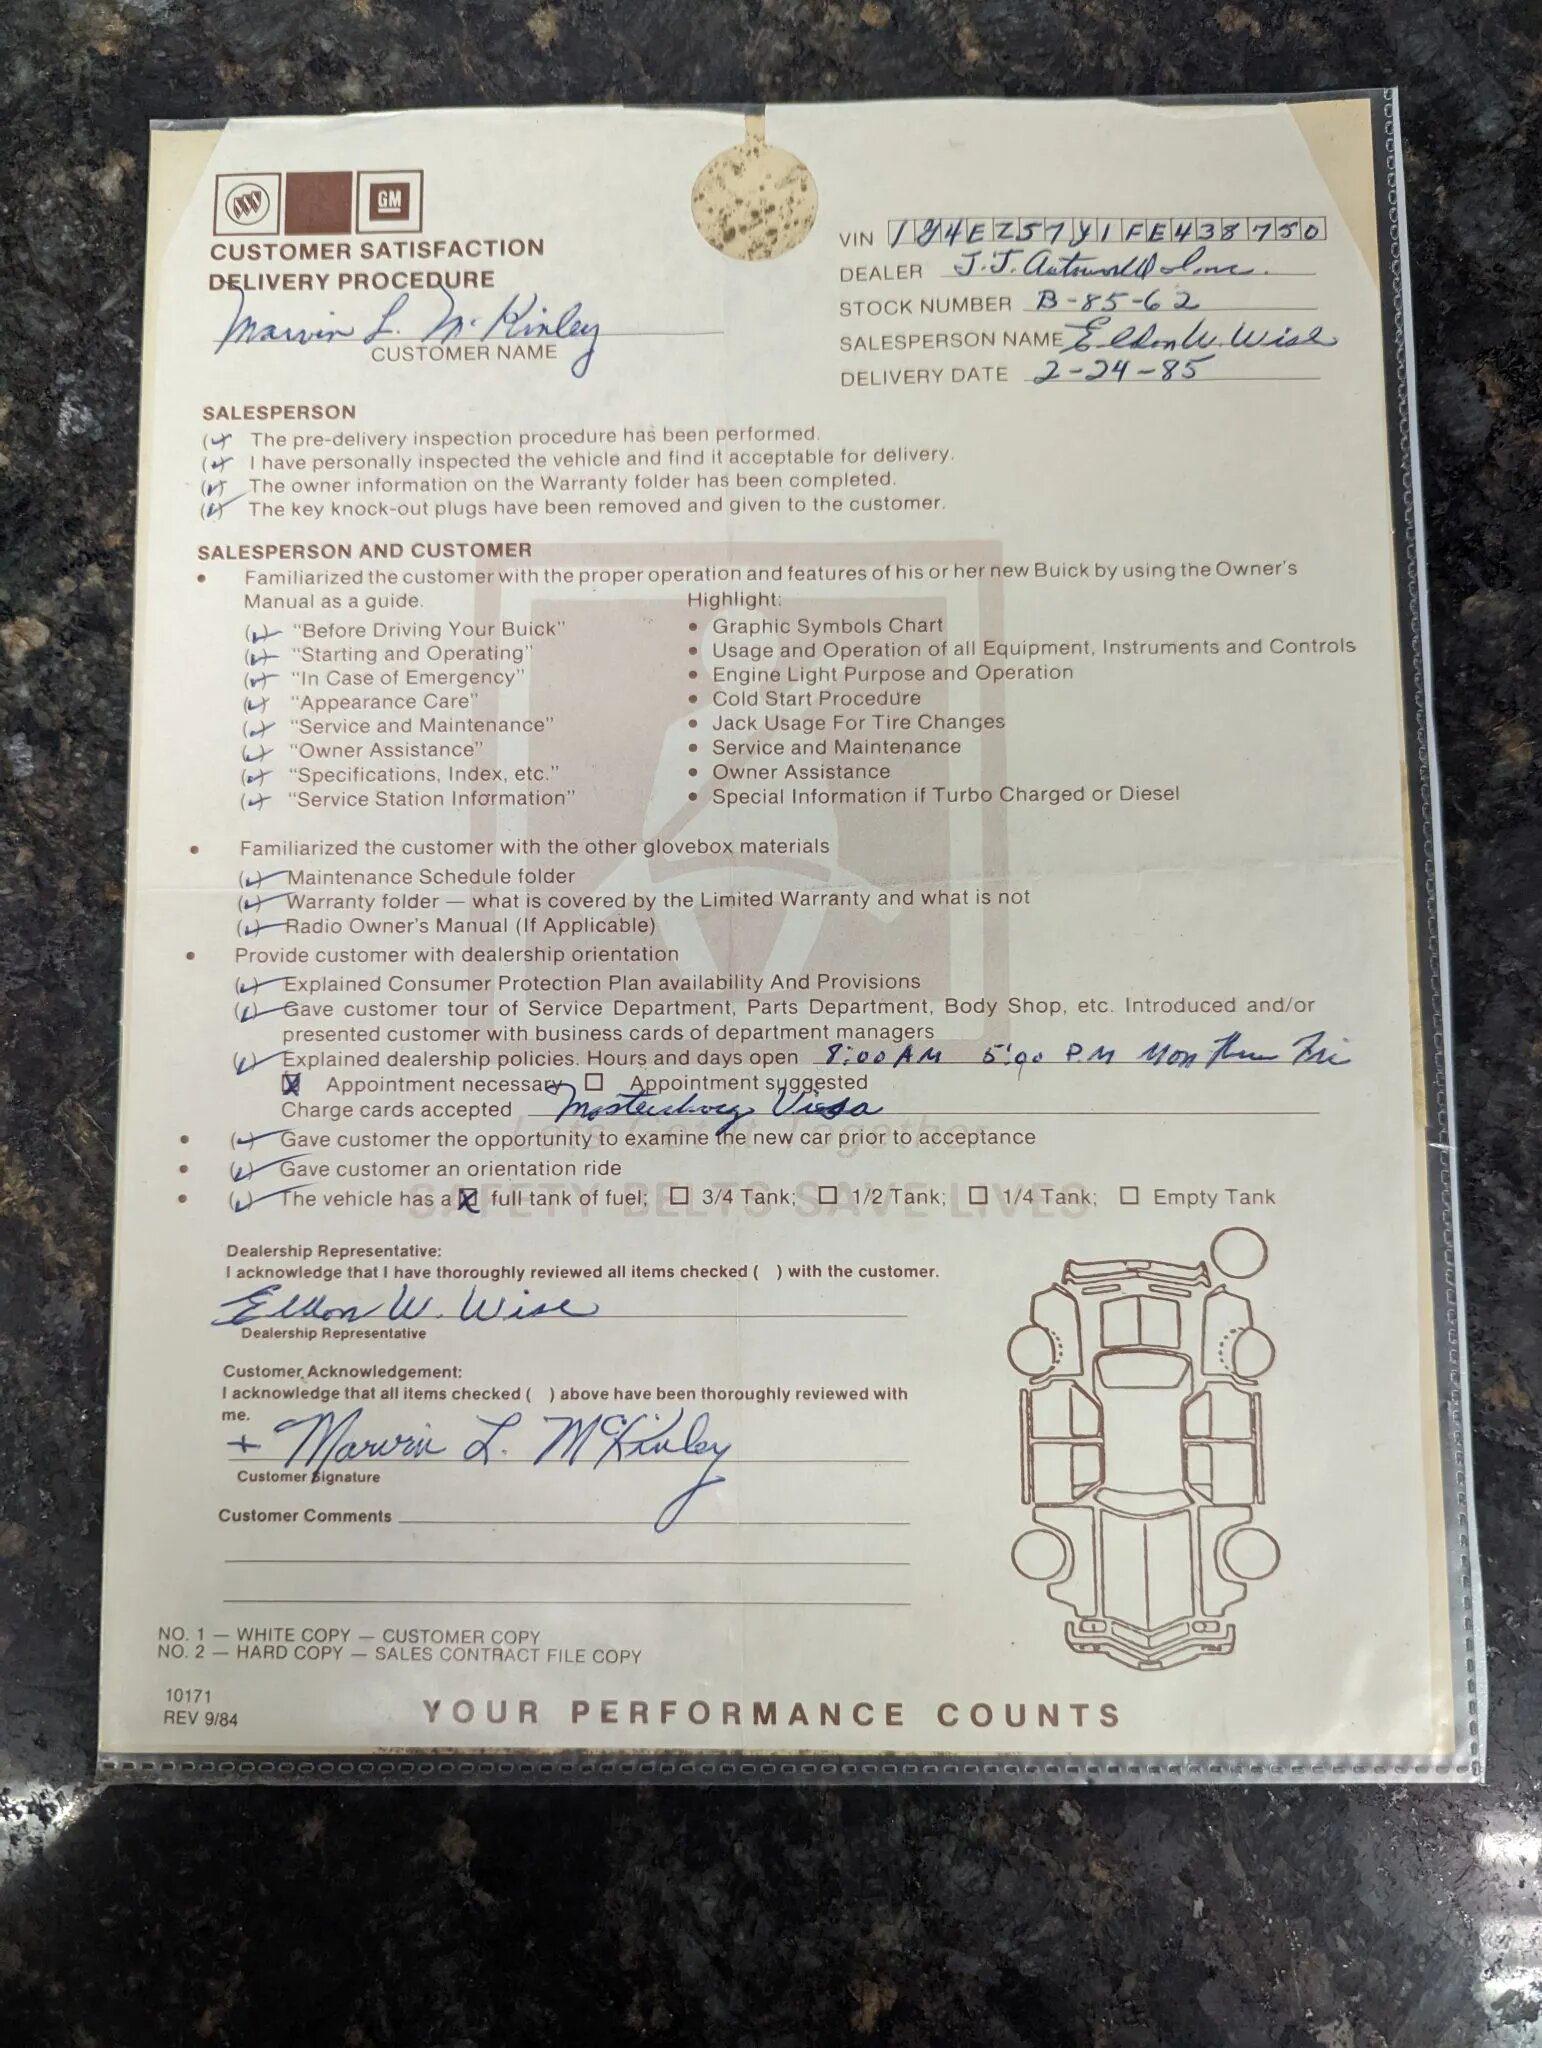 GM
CUSTOMER SATISFACTION
DELIVERY PROCEDURE
Marvin L. McKinley
CUSTOMER NAME
VIN 1G4EZ57Y1FE438750
DEALER J.J. Autoworld Inc.
STOCK NUMBER B-85-62
SALESPERSON NAME Eldon W. Wise
DELIVERY DATE 2-24-85
SALESPERSON
(✓) The pre-delivery inspection procedure has been performed.
(✓) I have personally inspected the vehicle and find it acceptable for delivery.
(✓) The owner information on the Warranty folder has been completed.
(✓) The key knock-out plugs have been removed and given to the customer.
SALESPERSON AND CUSTOMER
• Familiarized the customer with the proper operation and features of his or her new Buick by using the Owner's
Manual as a guide.
(✓) "Before Driving Your Buick"
(✓) "Starting and Operating"
(✓) "In Case of Emergency"
(✓) "Appearance Care"
(✓) "Service and Maintenance"
(✓) "Owner Assistance"
(✓) "Specifications, Index, etc."
(✓) "Service Station Information"
Highlight:
• Graphic Symbols Chart
• Usage and Operation of all Equipment, Instruments and Controls
• Engine Light Purpose and Operation
• Cold Start Procedure
• Jack Usage For Tire Changes
• Service and Maintenance
• Owner Assistance
• Special Information if Turbo Charged or Diesel
• Familiarized the customer with the other glovebox materials
(✓) Maintenance Schedule folder
(✓) Warranty folder — what is covered by the Limited Warranty and what is not
(✓) Radio Owner's Manual (If Applicable)
• Provide customer with dealership orientation
(✓) Explained Consumer Protection Plan availability And Provisions
(✓) Gave customer tour of Service Department, Parts Department, Body Shop, etc. Introduced and/or
presented customer with business cards of department managers
(✓) Explained dealership policies. Hours and days open 8:00 AM 5:00 P.M Mon thru Fri
☒ Appointment necessary ☐ Appointment suggested
Charge cards accepted Mastercharge Visa
Let's Get It Together
• (✓) Gave customer the opportunity to examine the new car prior to acceptance
• (✓) Gave customer an orientation ride
• (✓) The vehicle has a ☒ full tank of fuel; ☐ 3/4 Tank; ☐ 1/2 Tank; ☐ 1/4 Tank; ☐ Empty Tank
SAFETY BELTS SAVE LIVES
Dealership Representative:
I acknowledge that I have thoroughly reviewed all items checked ( ) with the customer.
Eldon W. Wise
Dealership Representative
Customer Acknowledgement:
I acknowledge that all items checked ( ) above have been thoroughly reviewed with
me.
+ Marvin L. McKinley
Customer Signature
Customer Comments
NO. 1 — WHITE COPY — CUSTOMER COPY
NO. 2 — HARD COPY — SALES CONTRACT FILE COPY
10171
REV 9/84
YOUR PERFORMANCE COUNTS